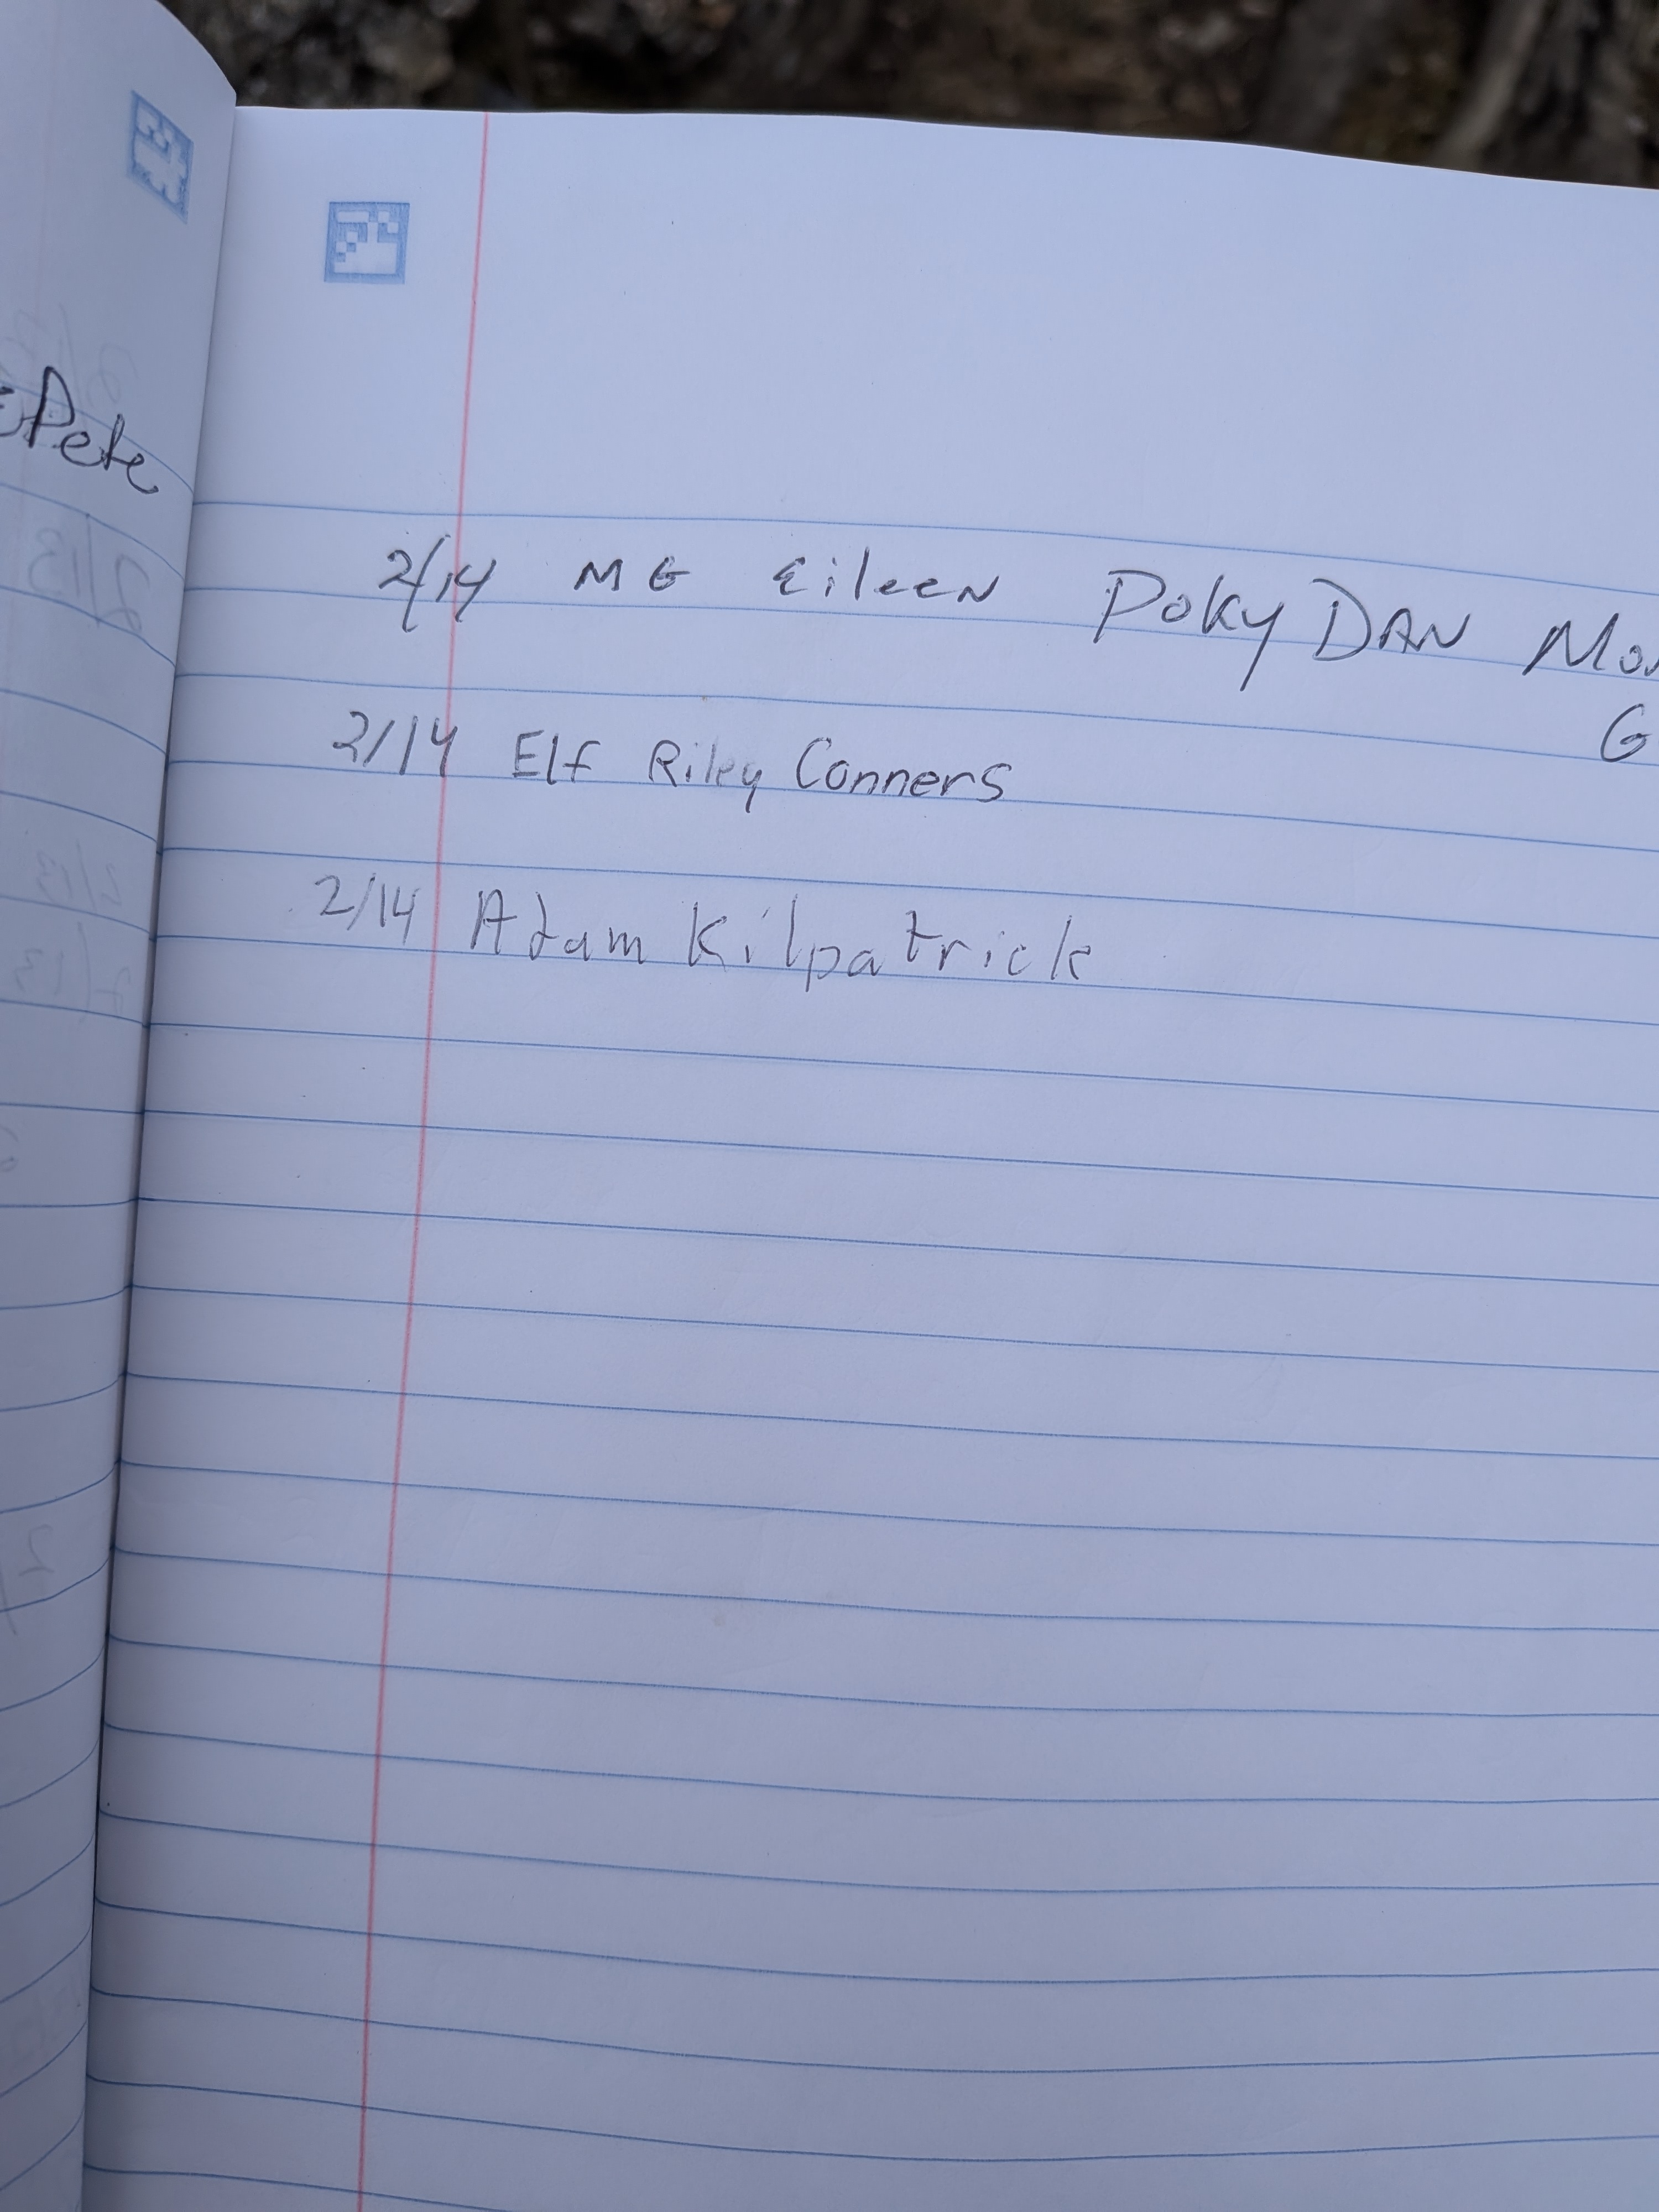 Pete
2/14 MG Eileen Poky DAN
G
2/14 Elf Riley Conners
2/14 Adam Kilpatrick